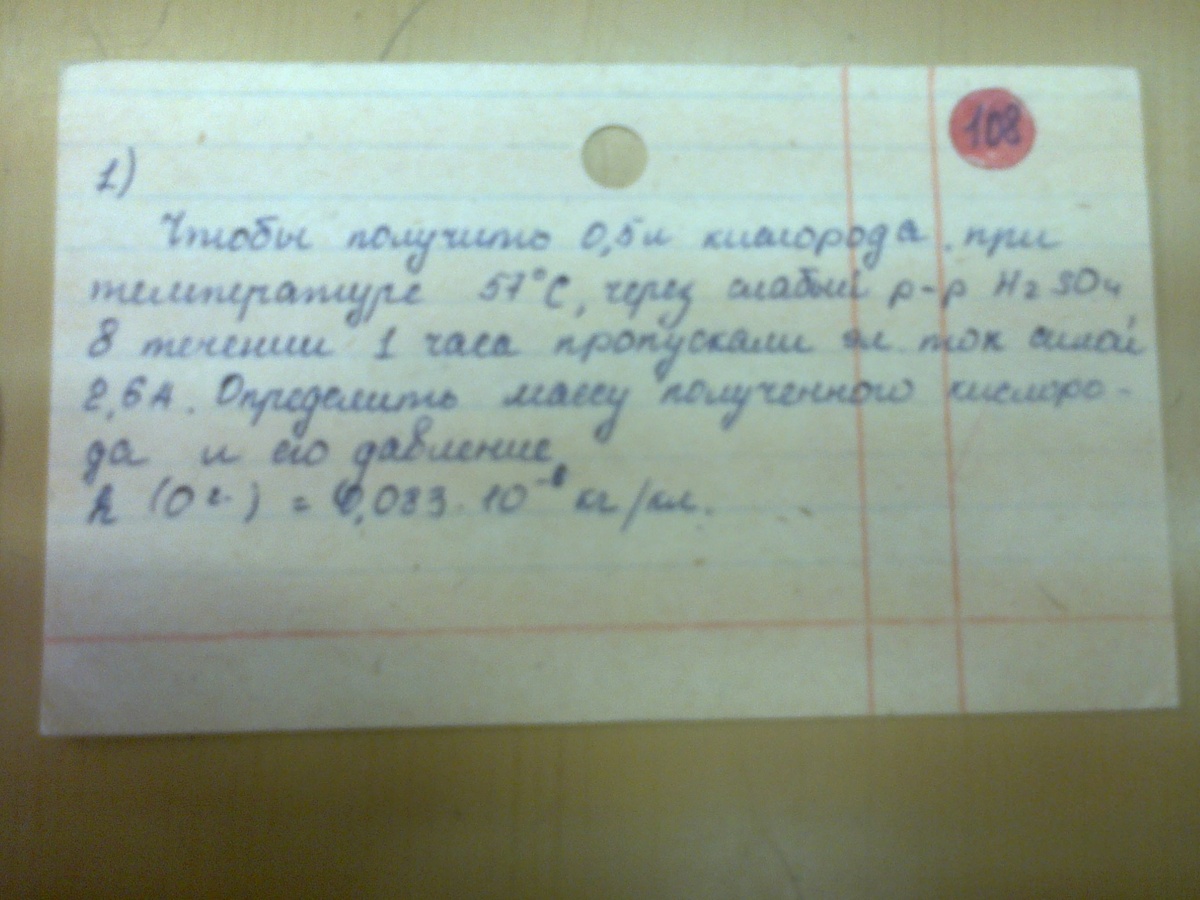 108
1)
Чтобы получить 0,5 л кислорода при
температуре 57°С, через слабый р-р H2SO4
в течении 1 часа пропускали эл ток силой
2,6А. Определить массу полученного кислоро-
да и его давление
k (O2-) = 0,083·10-6 кг/кл.